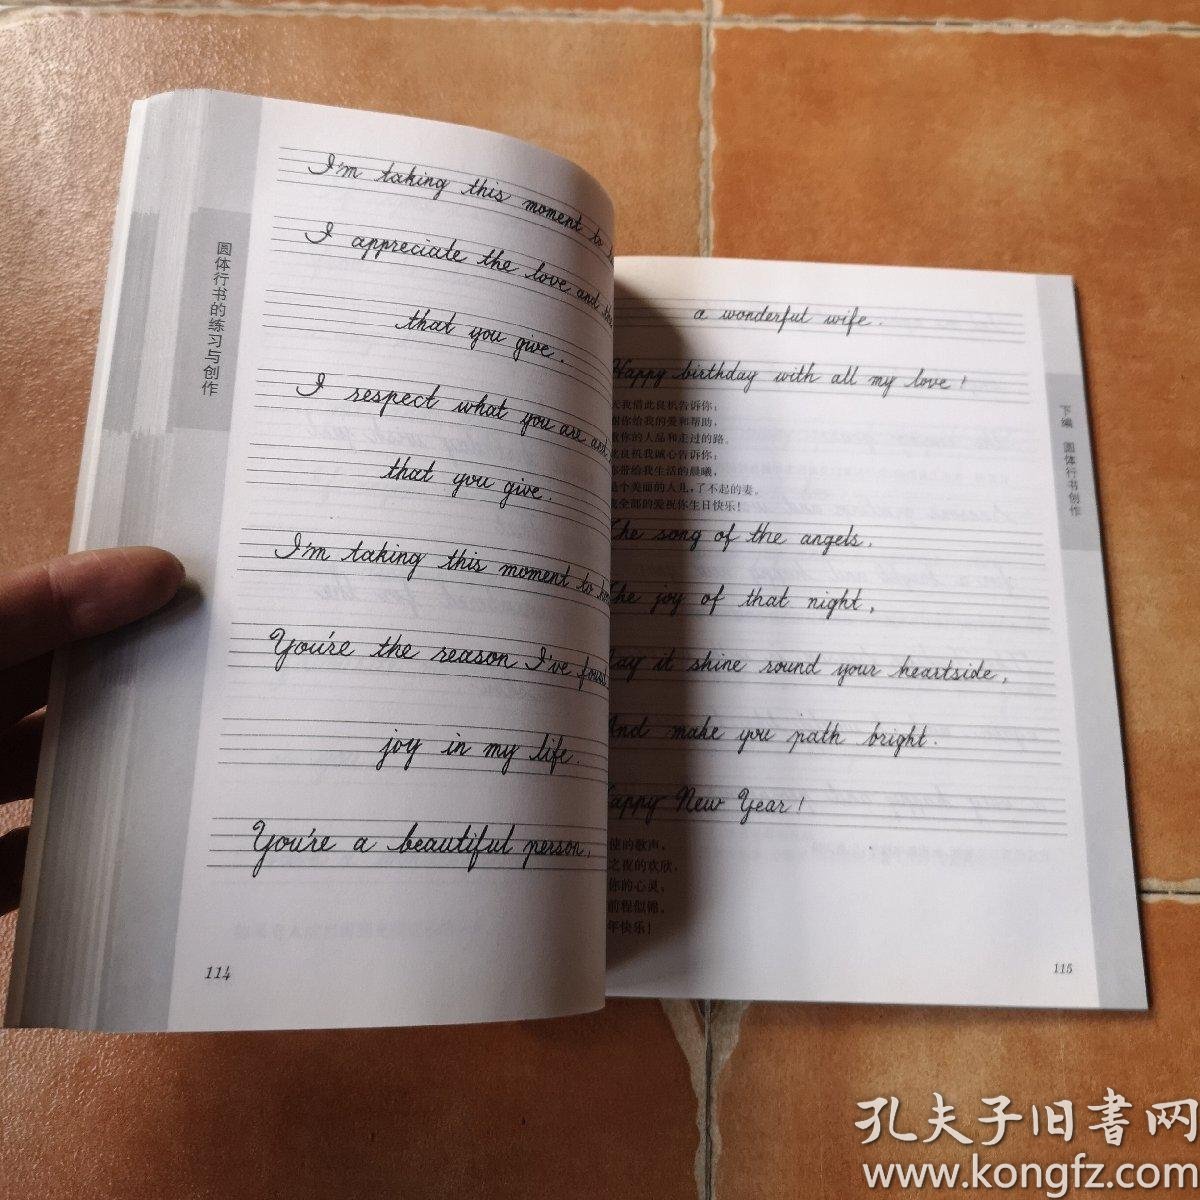 圆体行书的练习与创作
I'm taking this moment to
I appreciate the love and
that you give.
I respect what you are and
that you give.
I'm taking this moment to
You're the reason I've found
joy in my life.
You're a beautiful person,
114
a wonderful wife.
Happy birthday with all my love!
我借此良机告诉你：
你给我的爱和帮助，
你的人品和走过的路。
良机我诚心告诉你：
带给我生活的晨曦，
个美丽的人儿，了不起的妻。
全部的爱祝你生日快乐！
The song of the angels,
The joy of that night,
May it shine round your heartside,
And make you path bright.
Happy New Year!
使的歌声，
之夜的欢欣，
你的心灵，
前程似锦。
年快乐！
下编 圆体行书创作
115
孔夫子旧书网
www.kongfz.com